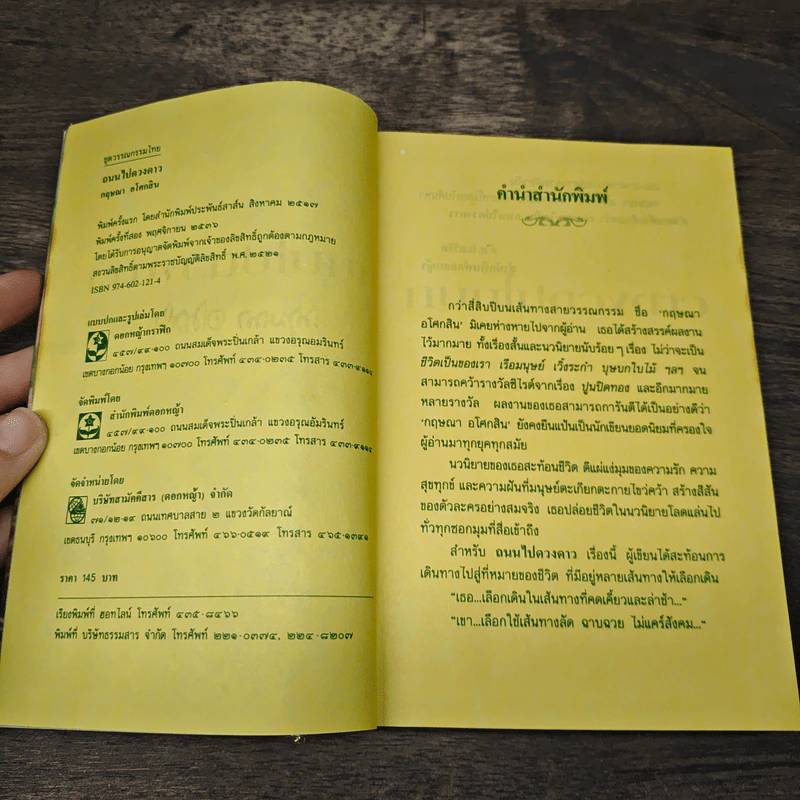 ชุดวรรณกรรมไทย
ถนนไปดวงดาว
กฤษณา อโศกสิน
พิมพ์ครั้งแรก โดยสำนักพิมพ์ประพันธ์สาส์น สิงหาคม ๒๕๑๗
พิมพ์ครั้งที่สอง พฤศจิกายน ๒๕๓๖
โดยได้รับการอนุญาตจัดพิมพ์จากเจ้าของลิขสิทธิ์ถูกต้องตามกฎหมาย
สงวนลิขสิทธิ์ตามพระราชบัญญัติลิขสิทธิ์ พ.ศ.๒๕๒๑
ISBN 974-602-121-4
แบบปกและรูปเล่มโดย
ดอกหญ้ากราฟิก
๔๕๗/๙๙-๑๐๐ ถนนสมเด็จพระปิ่นเกล้า แขวงอรุณอมรินทร์
เขตบางกอกน้อย กรุงเทพฯ ๑๐๗๐๐ โทรศัพท์ ๔๓๔-๐๒๓๕ โทรสาร
จัดพิมพ์โดย
สำนักพิมพ์ดอกหญ้า
๔๕๗/๙๙-๑๐๐ ถนนสมเด็จพระปิ่นเกล้า แขวงอรุณอัมรินทร์
เขตบางกอกน้อย กรุงเทพฯ ๑๐๗๐๐ โทรศัพท์ ๔๓๔-๐๒๓๕ โทรสาร
จัดจำหน่ายโดย
บริษัทสามัคคีสาร (ดอกหญ้า) จำกัด
๗๑/๑๒-๑๙ ถนนเทศบาลสาย ๒ แขวงวัดกัลยาณ์
เขตธนบุรี กรุงเทพฯ ๑๐๖๐๐ โทรศัพท์ ๔๖๖-๐๕๑๙ โทรสาร ๔๖๕-๑๓๙๑
ราคา 145 บาท
เรียงพิมพ์ที่ ฮอทไลน์ โทรศัพท์ ๔๓๕-๘๔๖๖
พิมพ์ที่ บริษัทธรรมสาร จำกัด โทรศัพท์ ๒๒๑-๐๓๗๔, ๒๒๔-๘๒๐๗
คำนำสำนักพิมพ์
กว่าสี่สิบปีบนเส้นทางสายวรรณกรรม ชื่อ ‘กฤษณา
อโศกสิน’ มิเคยห่างหายไปจากผู้อ่าน เธอได้สร้างสรรค์ผลงาน
ไว้มากมาย ทั้งเรื่องสั้นและนวนิยายนับร้อยๆ เรื่อง ไม่ว่าจะเป็น
ชีวิตเป็นของเรา เรือมนุษย์ เวิ้งระกำ บุษบกใบไม้ ฯลฯ จน
สามารถคว้ารางวัลซีไรต์จากเรื่อง ปูนปิดทอง และอีกมากมาย
หลายรางวัล ผลงานของเธอสามารถการันตีได้เป็นอย่างดีว่า
‘กฤษณา อโศกสิน’ ยังคงยืนแป้นเป็นนักเขียนยอดนิยมที่ครองใจ
ผู้อ่านมาทุกยุคทุกสมัย
นวนิยายของเธอสะท้อนชีวิต ตีแผ่แง่มุมของความรัก ความ
สุขทุกข์ และความฝันที่มนุษย์ตะเกียกตะกายไขว่คว้า สร้างสีสัน
ของตัวละครอย่างสมจริง เธอปล่อยชีวิตในนวนิยายโลดแล่นไป
ทั่วทุกซอกมุมที่สื่อเข้าถึง
สำหรับ ถนนไปดวงดาว เรื่องนี้ ผู้เขียนได้สะท้อนการ
เดินทางไปสู่ที่หมายของชีวิต ที่มีอยู่หลายเส้นทางให้เลือกเดิน
“เธอ...เลือกเดินในเส้นทางที่คดเคี้ยวและล่าช้า...”
“เขา...เลือกใช้เส้นทางลัด ฉาบฉวย ไม่แคร์สังคม...”